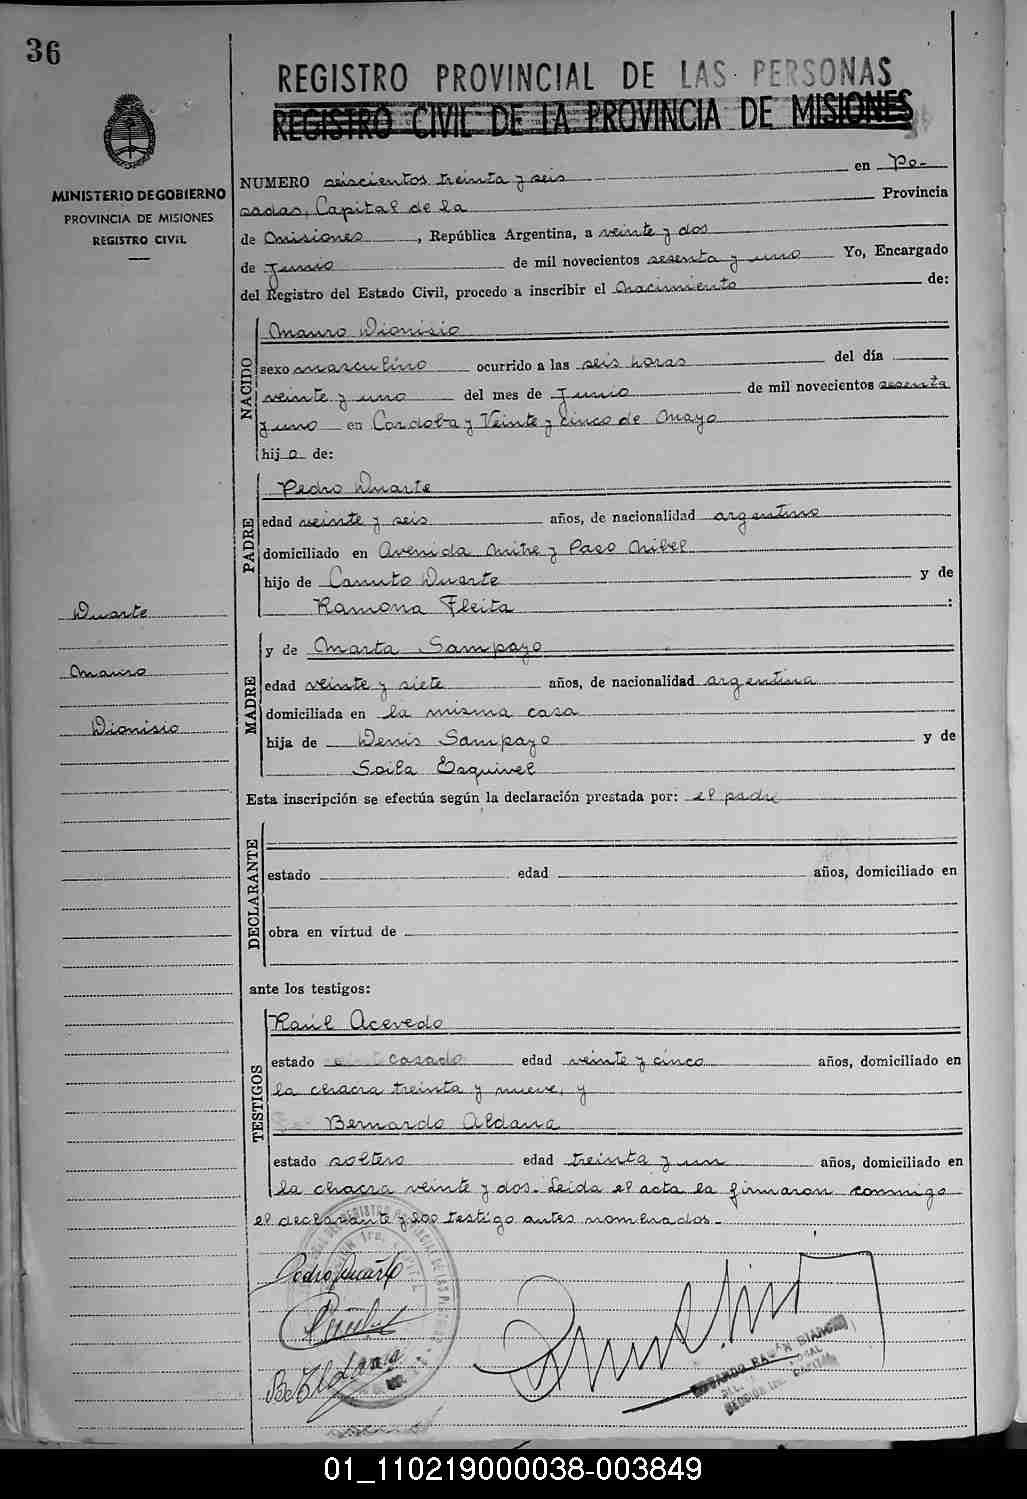 36
REGISTRO PROVINCIAL DE LAS PERSONAS
REGISTRO CIVIL DE LA PROVINCIA DE MISIONES
MINISTERIO DE GOBIERNO
PROVINCIA DE MISIONES
REGISTRO CIVIL
NUMERO seiscientos treinta y seis en Po-
sadas, Capital de la Provincia
de Misiones, República Argentina, a veinte y dos
de Junio de mil novecientos sesenta y uno Yo, Encargado
del Registro del Estado Civil, procedo a inscribir el Nacimiento de:
NACIDO
Mauro Dionisio
sexo masculino ocurrido a las seis horas del día
veinte y uno del mes de Junio de mil novecientos sesenta
y uno en Cordoba y Veinte y cinco de Mayo
hijo de:
PADRE
Pedro Duarte
edad veinte y seis años, de nacionalidad argentino
domiciliado en Avenida Mitre y Paso
hijo de Canuto Duarte y de
Ramona Fleita :
Duarte
Mauro
Dionisio
MADRE
y de Marta Sampayo
edad veinte y siete años, de nacionalidad argentina
domiciliada en la misma casa
hija de Denis Sampayo y de
Soila Esquivel
Esta inscripción se efectúa según la declaración prestada por: el padre
DECLARANTE
estado edad años, domiciliado en
obra en virtud de
ante los testigos:
TESTIGOS
Raúl Acevedo
estado casado edad veinte y cinco años, domiciliado en
la chacra treinta y nueve, y
Bernardo Aldana
estado soltero edad treinta y un años, domiciliado en
la chacra veinte y dos. Leida el acta la firmaron conmigo
el declarante y los testigo antes nombrados.-
Pedro Duarte
B. Aldana
01_110219000038-003849